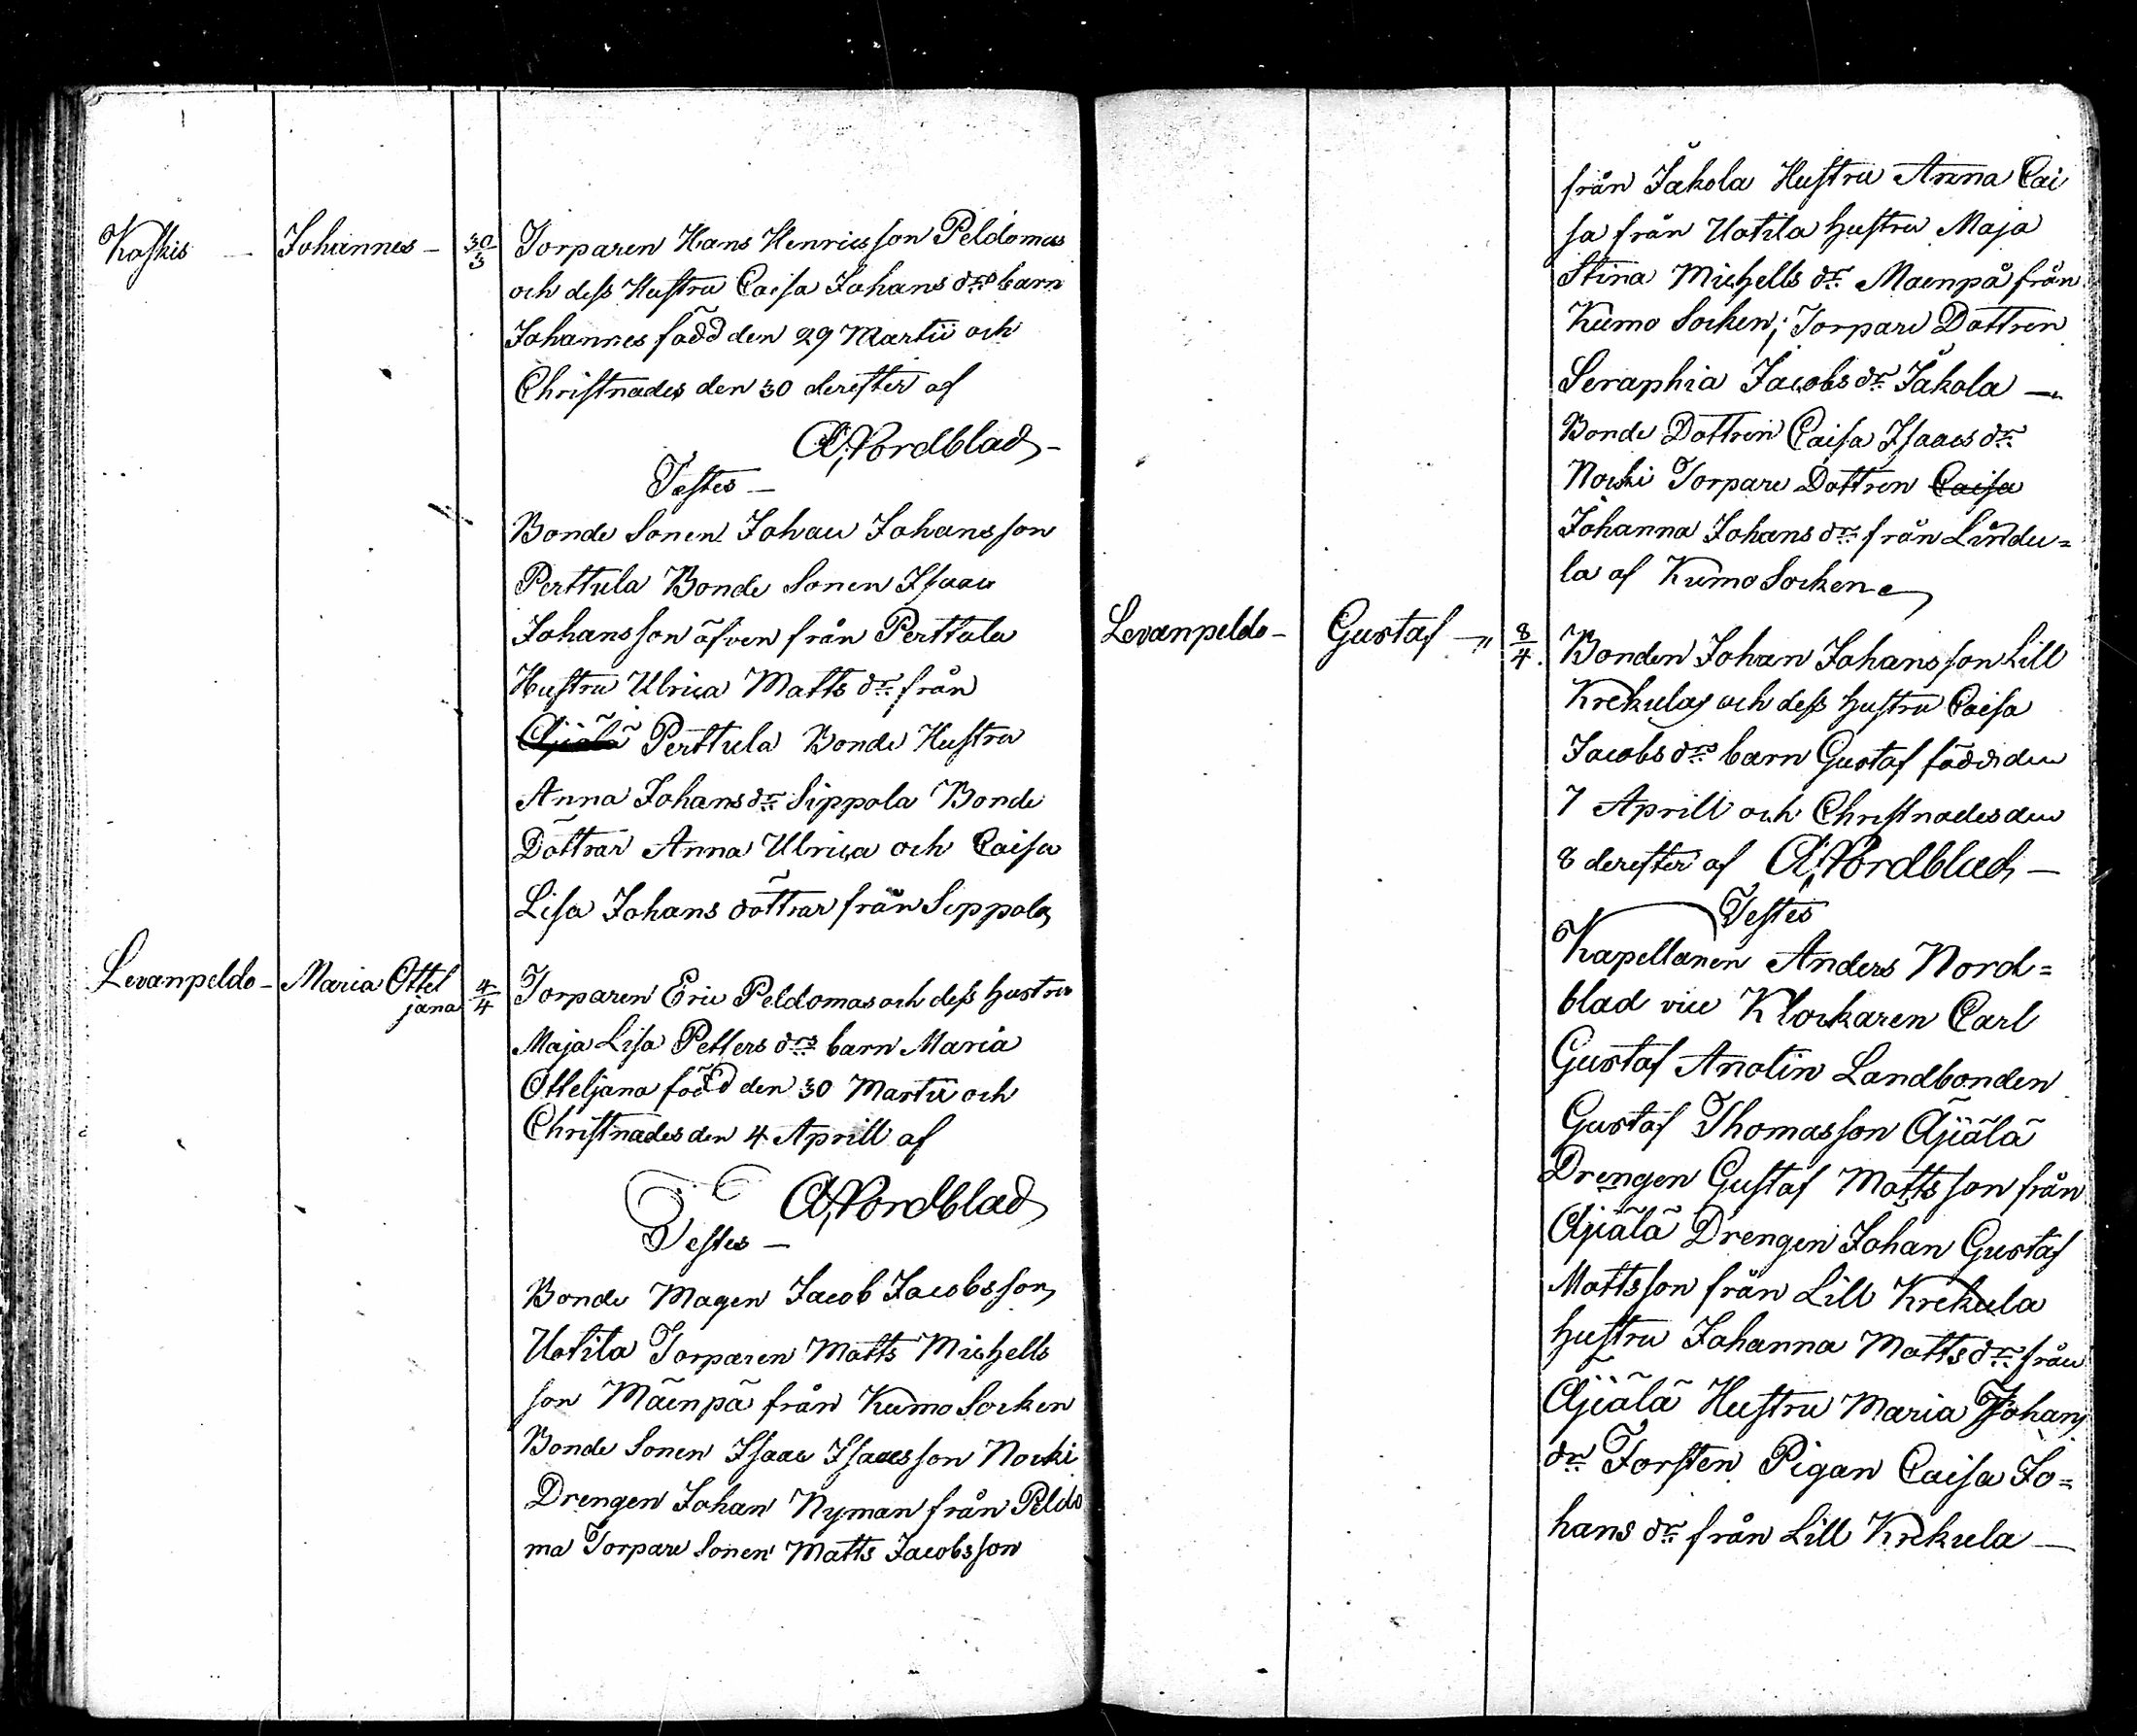 Kaskis — Johannes — 30/3 Torparen Hans Henricsson Peldomas
och dess Hustru Caisa Johans drs barn
Johannes född den 29 Martii och
Christnades den 30 derefter af
A. Nordblad —
Testes —
Bonde Sonen Johan Johansson
Perttula Bonde Sonen Isaac
Johansson äfven från Perttula
Hustru Ulrica Matts dr från
Äjälä Perttula Bonde Hustru
Anna Johans dr Sippola Bonde
Döttrar Anna Ulrica och Caisa
Lisa Johans döttrar från Sippola
Levanpeldo — Maria Ottel
jana 4/4 Torparen Eric Peldomas och dess hustru
Maja Lisa Petters drs barn Maria
Otteljana född den 30 Martii och
Christnades den 4 Aprill af
A. Nordblad
Testes —
Bonde Magen Jacob Jacobsson
Uotila Torparen Matts Michells
son Mäenpä från Kumo Socken
Bonde Sonen Isaac Isaacsson Nocki
Drengen Johan Nyman från Peldo
ma Torpare Sonen Matts Jacobsson
från Jåkola Hustru Anna Cai
sa från Uotila hustru Maja
Stina Michells dr Maenpå från
Kumo Socken; Torpare Dottren
Seraphia Jacobs dr Jåkola —
Bonde Dottren Caisa Isaacs dr
Nocki Torpare Dottren Caisa
Johanna Johans dr från Lindu=
la af Kumo Socken
Levanpeldo — Gustaf —" 8/4. Bonden Johan Johansson Lill
Krekulas och dess hustru Caisa
Jacobs drs barn Gustaf född den
7 Aprill och Christnades den
8 derefter af A. Nordblad —
Testes
Kapellanen Anders Nord=
blad vice Klockaren Carl
Gustaf Anolin Landbonden
Gustaf Thomasson Äjälä
Drengen Gustaf Mattsson från
Äjälä Drengen Johan Gustaf
Mattsson från Lill Krekula
hustru Johanna Matts dr från
Äjälä Hustru Maria Johans
dr Torsten Pigan Caisa Jo=
hans dr från Lill Krekula —